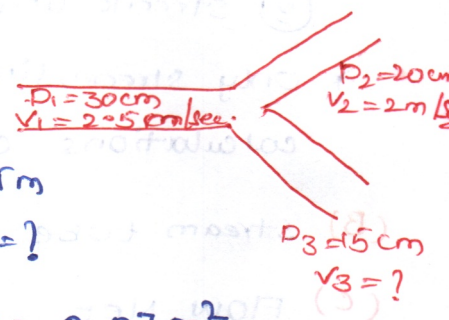 D₁ = 30cm
V₁ = 2.5 cm/sec.
D₂ = 20cm
V₂ = 2m/s
= ?
D₃ = 15 cm
V₃ = ?